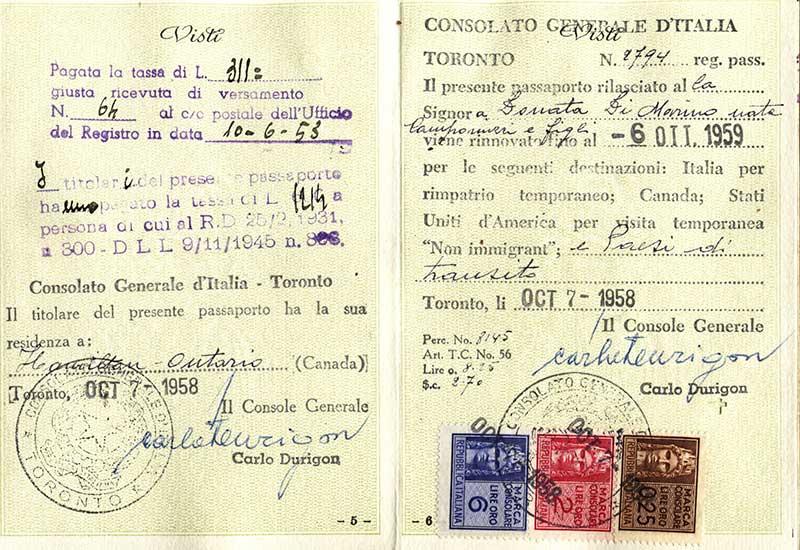 Visti
Pagata la tassa di L. 311=
giusta ricevuta di versamento
N. 64 al c/c postale dell'Ufficio
del Registro in data 10-6-53
I titolari del presente passaporto
hanno pagato la tassa di L 1212 a
persona di cui al R.D 25/2, 1931,
n 300 - D L L 9/11/1945 n.
Consolato Generale d'Italia - Toronto
Il titolare del presente passaporto ha la sua
residenza a:
Hamilton - Ontario (Canada)
Toronto, OCT 7 - 1958
Il Console Generale
Carlo Durigon
TORONTO
- 5 -
CONSOLATO GENERALE D'ITALIA
Visti
TORONTO N. 2794 reg. pass.
Il presente passaporto rilasciato al la
Signor a Donata Di Marino nata
e figli
viene rinnovato fino al - 6 OTT. 1959
per le seguenti destinazioni: Italia per
rimpatrio temporaneo; Canada; Stati
Uniti d'America per visita temporanea
"Non immigrant"; e Paesi di
transito
Toronto, li OCT 7 - 1958
Il Console Generale
Perc. No. 8145
Art. T.C. No. 56
Lire o. 8.25
$.c. 2.70
Carlo Durigon
CONSOLATO GENERALE
OCT 7 - 1958
REPUBBLICA ITALIANA
MARCA CONSOLARE
LIRE ORO
6
REPUBBLICA ITALIANA
MARCA CONSOLARE
LIRE ORO
2
REPUBBLICA ITALIANA
MARCA CONSOLARE
LIRE ORO
0.25
- 6